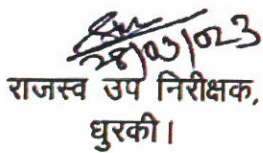 28/03/023
राजस्व उप निरीक्षक,
धुरकी।